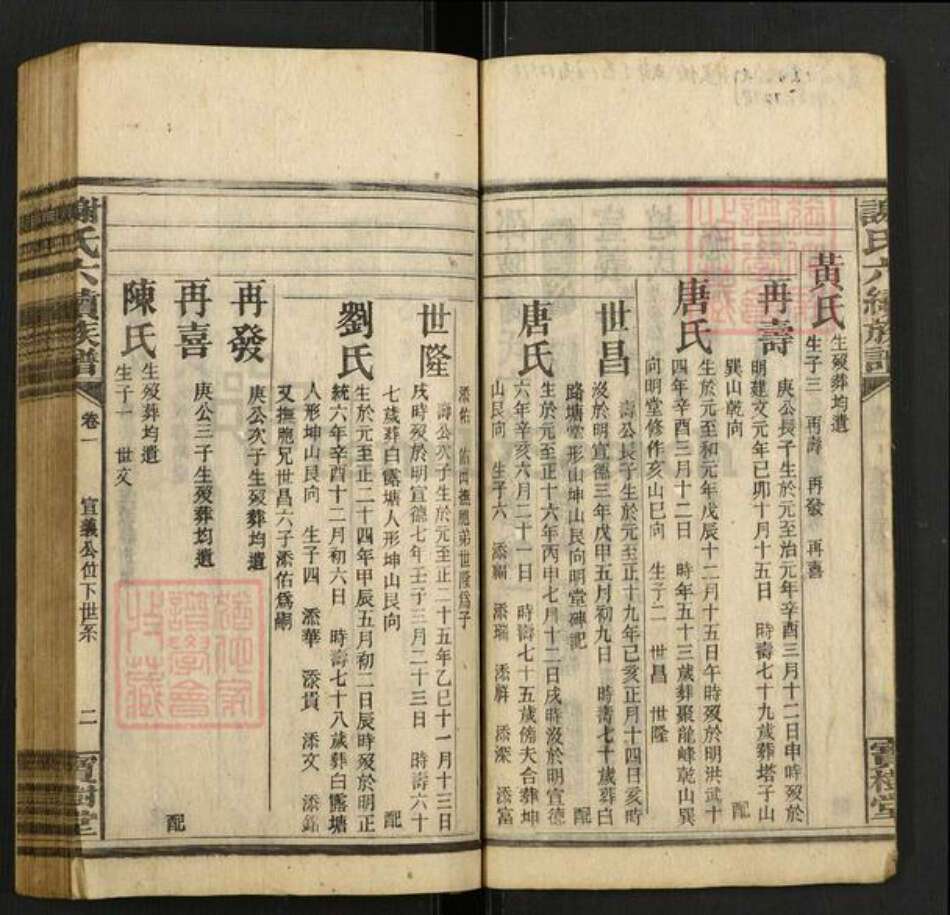 謝氏六續族譜
黃氏
生歿葬均遺
生子三 再壽 再發 再喜
再壽
庚公長子生於元至治元年辛酉三月十二日申時歿於
明建文元年己卯十月十五日 時壽七十九歲葬塔子山
巽山乾向 配
唐氏
生於元至和元年戊辰十二月十五日午時歿於明洪武十
四年辛酉三月十二日 時年五十三歲葬聚龍峰乾山巽
向明堂修作亥山巳向 生子二 世昌 世隆
世昌
壽公長子生於元至正十九年己亥正月十四日亥時
沒於明宣德三年戊申五月初九日 時壽七十歲葬白
路塘堂形山坤山艮向明堂碑記 配
唐氏
生於元至正十六年丙申七月十二日戌時沒於明宣德
六年辛亥六月二十一日 時壽七十五歲傍夫合葬坤
山艮向 生子六 添福 添瑞 添祥 添深 添富
寶樹堂
添佑 佑出撫胞弟世隆為子
世隆
壽公次子生於元至正二十五年乙巳十一月十三日
戌時歿於明宣德七年壬子三月二十三日 時壽六十
七歲葬白露塘人形坤山艮向 配
劉氏
生於元至正二十四年甲辰五月初二日辰時歿於明正
統六年辛酉十二月初六日 時壽七十八歲葬白露塘
人形坤山艮向 生子四 添華 添貴 添文 添銘
又撫胞兄世昌六子添佑為嗣
再發
庚公次子生歿葬均遺
再喜
庚公三子生歿葬均遺 配
陳氏
生歿葬均遺
生子一 世文
謝氏六續族譜
卷一
宣義公位下世系
二
寶樹堂